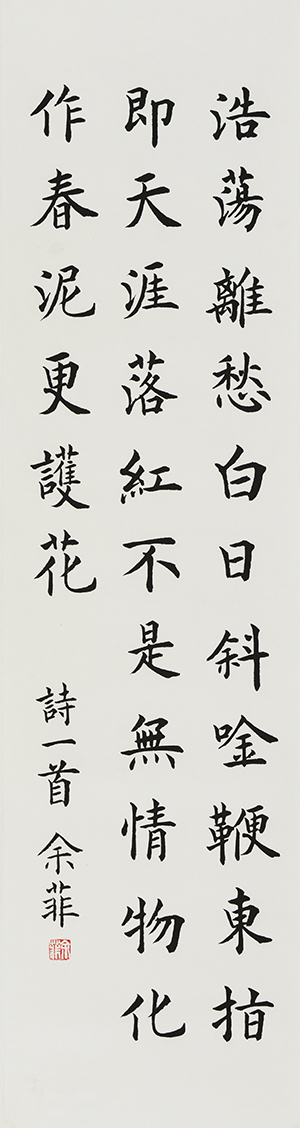 浩蕩離愁白日斜唫鞭東指
即天涯落紅不是無情物化
作春泥更護花
詩一首 余菲